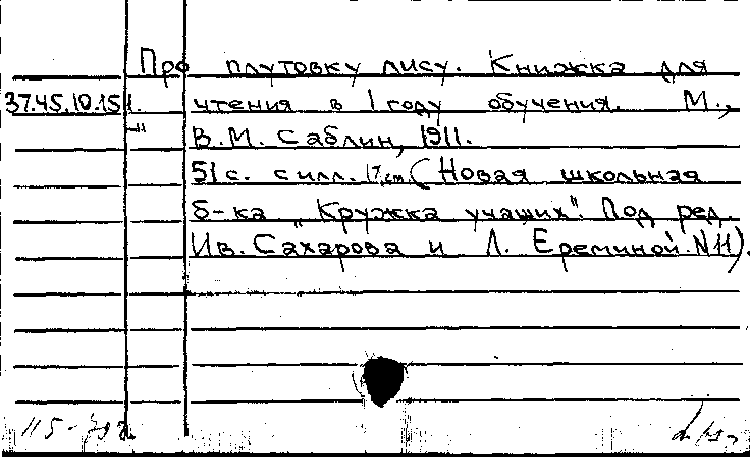 Про плутовку лису. Книжка для
37.45.10.151. чтения в 1 году обучения. М.,
В.М. Саблин, 1911.
51 с. с илл. 17 cm. (Новая школьная
б-ка „Кружка учащих". Под ред.
Ив. Сахарова и Л. Ереминой. N 11).
115-